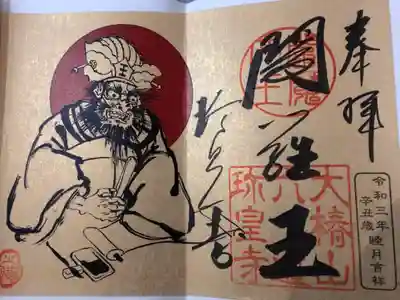 奉拝
令和三年睦月吉祥
辛丑歳
閻羅王
大椿山
六道
珎皇寺
王